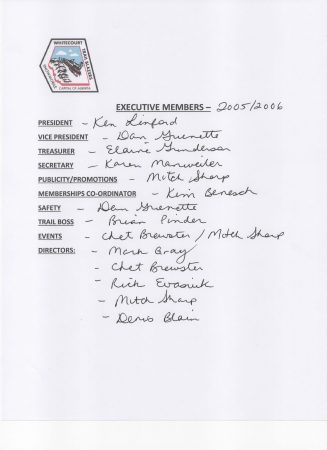 WHITECOURT
TRAIL BLAZERS
SNOWMOBILE
CAPITAL OF ALBERTA
EXECUTIVE MEMBERS – 2005/2006
PRESIDENT - Ken Linford
VICE PRESIDENT - Dan Guenette
TREASURER - Elaine Gunderson
SECRETARY - Karen Manweiler
PUBLICITY/PROMOTIONS - Mitch Sharp
MEMBERSHIPS CO-ORDINATOR - Kim Benesch
SAFETY - Dan Guenette
TRAIL BOSS - Brian Pinder
EVENTS - Chet Brewster / Mitch Sharp
DIRECTORS: - Mark Gray
- Chet Brewster
- Rick Evasiuk
- Mitch Sharp
- Denis Blain